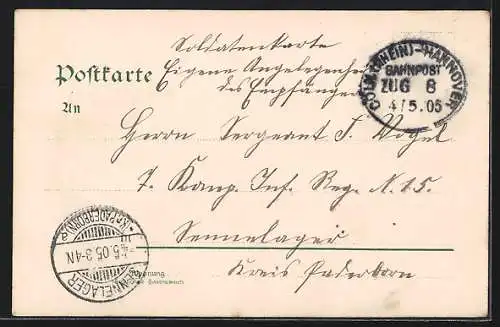 Soldatenkarte
Postkarte
Eigene Angelegenheit
des Empfängers
An
CÖLN (RHEIN)-HANNOVER
BAHNPOST
ZUG 8
4/5.05
Herrn Sergeant J. Vogel
7. Komp. Inf. Reg. N. 15.
Sennelager
Kreis Paderborn
SENNELAGER
5.05.3-4N
(Kr. PADERBORN) a
Wohnung